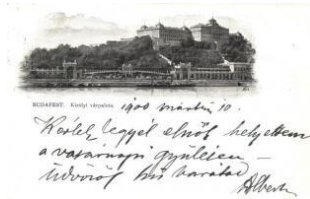 BUDAPEST. Királyi várpalota.
1900 március 10.
Kérlek legyél elnök helyettem
a vasárnapi gyűlésen –
Üdvözöl hű barátod
Albert